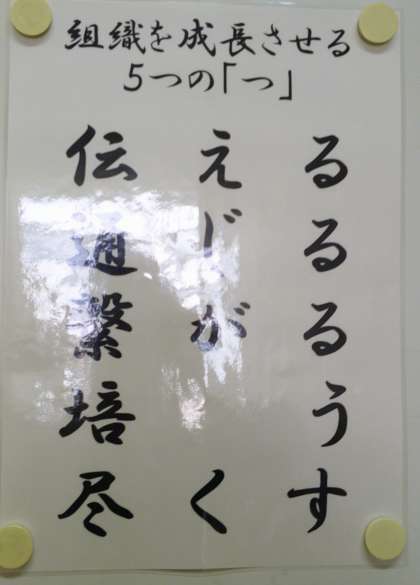 組織を成長させる
5つの「つ」
伝える
通じる
繋がる
培　う
尽くす